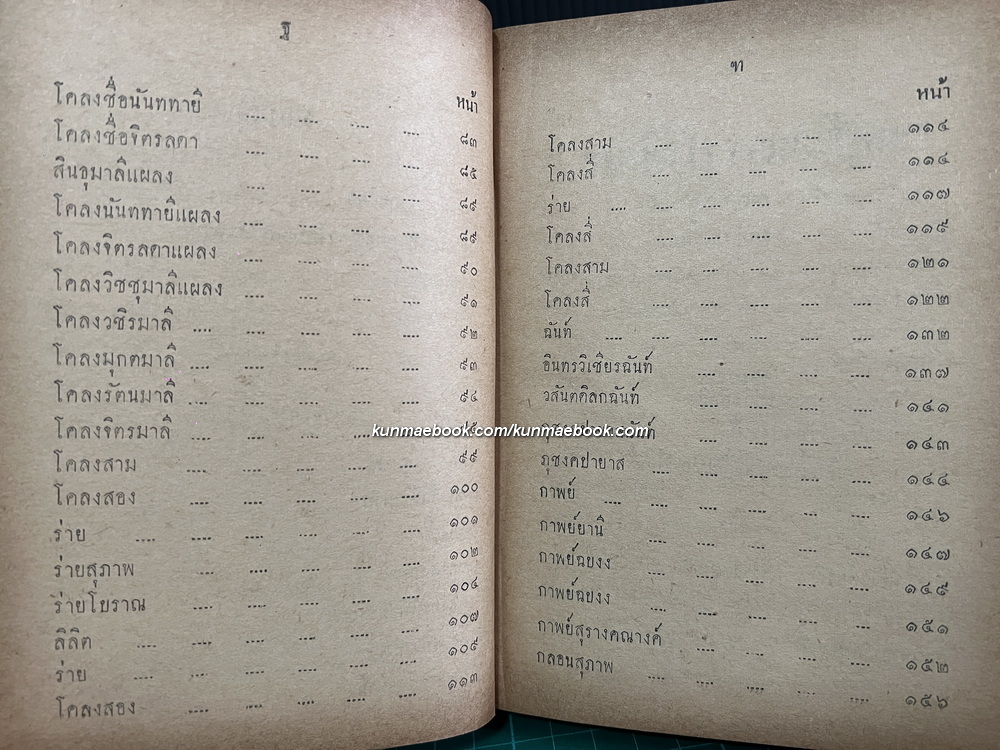 ฐ
หน้า
โคลงชื่อนันททายี .... .... .... .... ๘๓
โคลงชื่อจิตรลดา .... .... .... .... ๘๕
สินธุมาลีแผลง .... .... .... .... ๘๙
โคลงนันททายีแผลง .... .... .... .... ๘๙
โคลงจิตรลดาแผลง .... .... .... .... ๙๐
โคลงวิชชุมาลีแผลง .... .... .... .... ๙๑
โคลงวชิรมาลี .... .... .... .... .... ๙๒
โคลงมุกตมาลี .... .... .... .... .... ๙๓
โคลงรัตนมาลี .... .... .... .... .... ๙๔
โคลงจิตรมาลี .... .... .... .... ....
โคลงสาม .... .... .... .... .... ๙๙
โคลงสอง .... .... .... .... .... ๑๐๐
ร่าย .... .... .... .... .... .... ๑๐๑
ร่ายสุภาพ .... .... .... .... .... ๑๐๒
ร่ายโบราณ .... .... .... .... .... ๑๐๔
ลิลิต .... .... .... .... .... .... ๑๐๗
ร่าย .... .... .... .... .... .... ๑๐๙
โคลงสอง .... .... .... .... .... ๑๑๓
ฑ
หน้า
โคลงสาม .... .... .... .... .... ๑๑๔
โคลงสี่ .... .... .... .... .... ๑๑๔
ร่าย .... .... .... .... .... .... ๑๑๗
โคลงสี่ .... .... .... .... .... ๑๑๙
โคลงสาม .... .... .... .... .... ๑๒๑
โคลงสี่ .... .... .... .... .... ๑๒๒
ฉันท์ .... .... .... .... .... .... ๑๓๒
อินทรวิเชียรฉันท์ .... .... .... .... ๑๓๗
วสันตดิลกฉันท์ .... .... .... .... ๑๔๑
.... .... .... .... ๑๔๓
ภุชงคปายาส .... .... .... .... .... ๑๔๔
กาพย์ .... .... .... .... .... .... ๑๔๖
กาพย์ยานิ .... .... .... .... .... ๑๔๗
กาพย์ฉบัง .... .... .... .... .... ๑๔๙
กาพย์ฉบัง .... .... .... .... .... ๑๕๑
กาพย์สุรางคณางค์ .... .... .... .... ๑๕๒
กลอนสุภาพ .... .... .... .... .... ๑๕๖
kunmaebook.com/kunmaebook.com